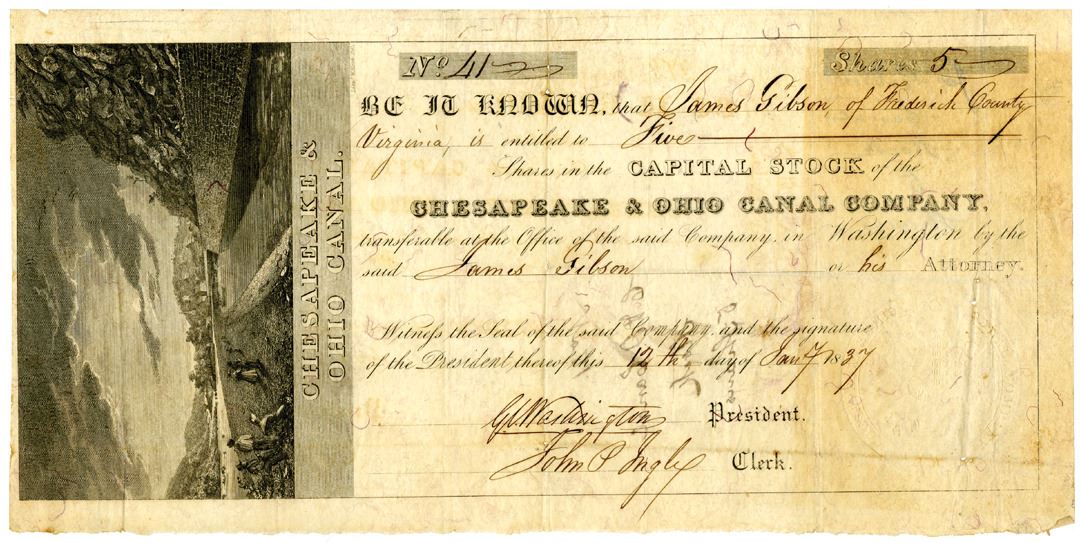 CHESAPEAKE &
OHIO CANAL.
No 41
Shares 5
BE IT KNOWN, that James Gibson, of Frederick County
Virginia, is entitled to Five
Shares in the CAPITAL STOCK of the
CHESAPEAKE & OHIO CANAL COMPANY,
transferable at the Office of the said Company, in Washington by the
said James Gibson or his Attorney.
Witness the Seal of the said Company, and the signature
of the President thereof this 12th day of Jany 1837
G C Washington President.
John P Ingle Clerk.